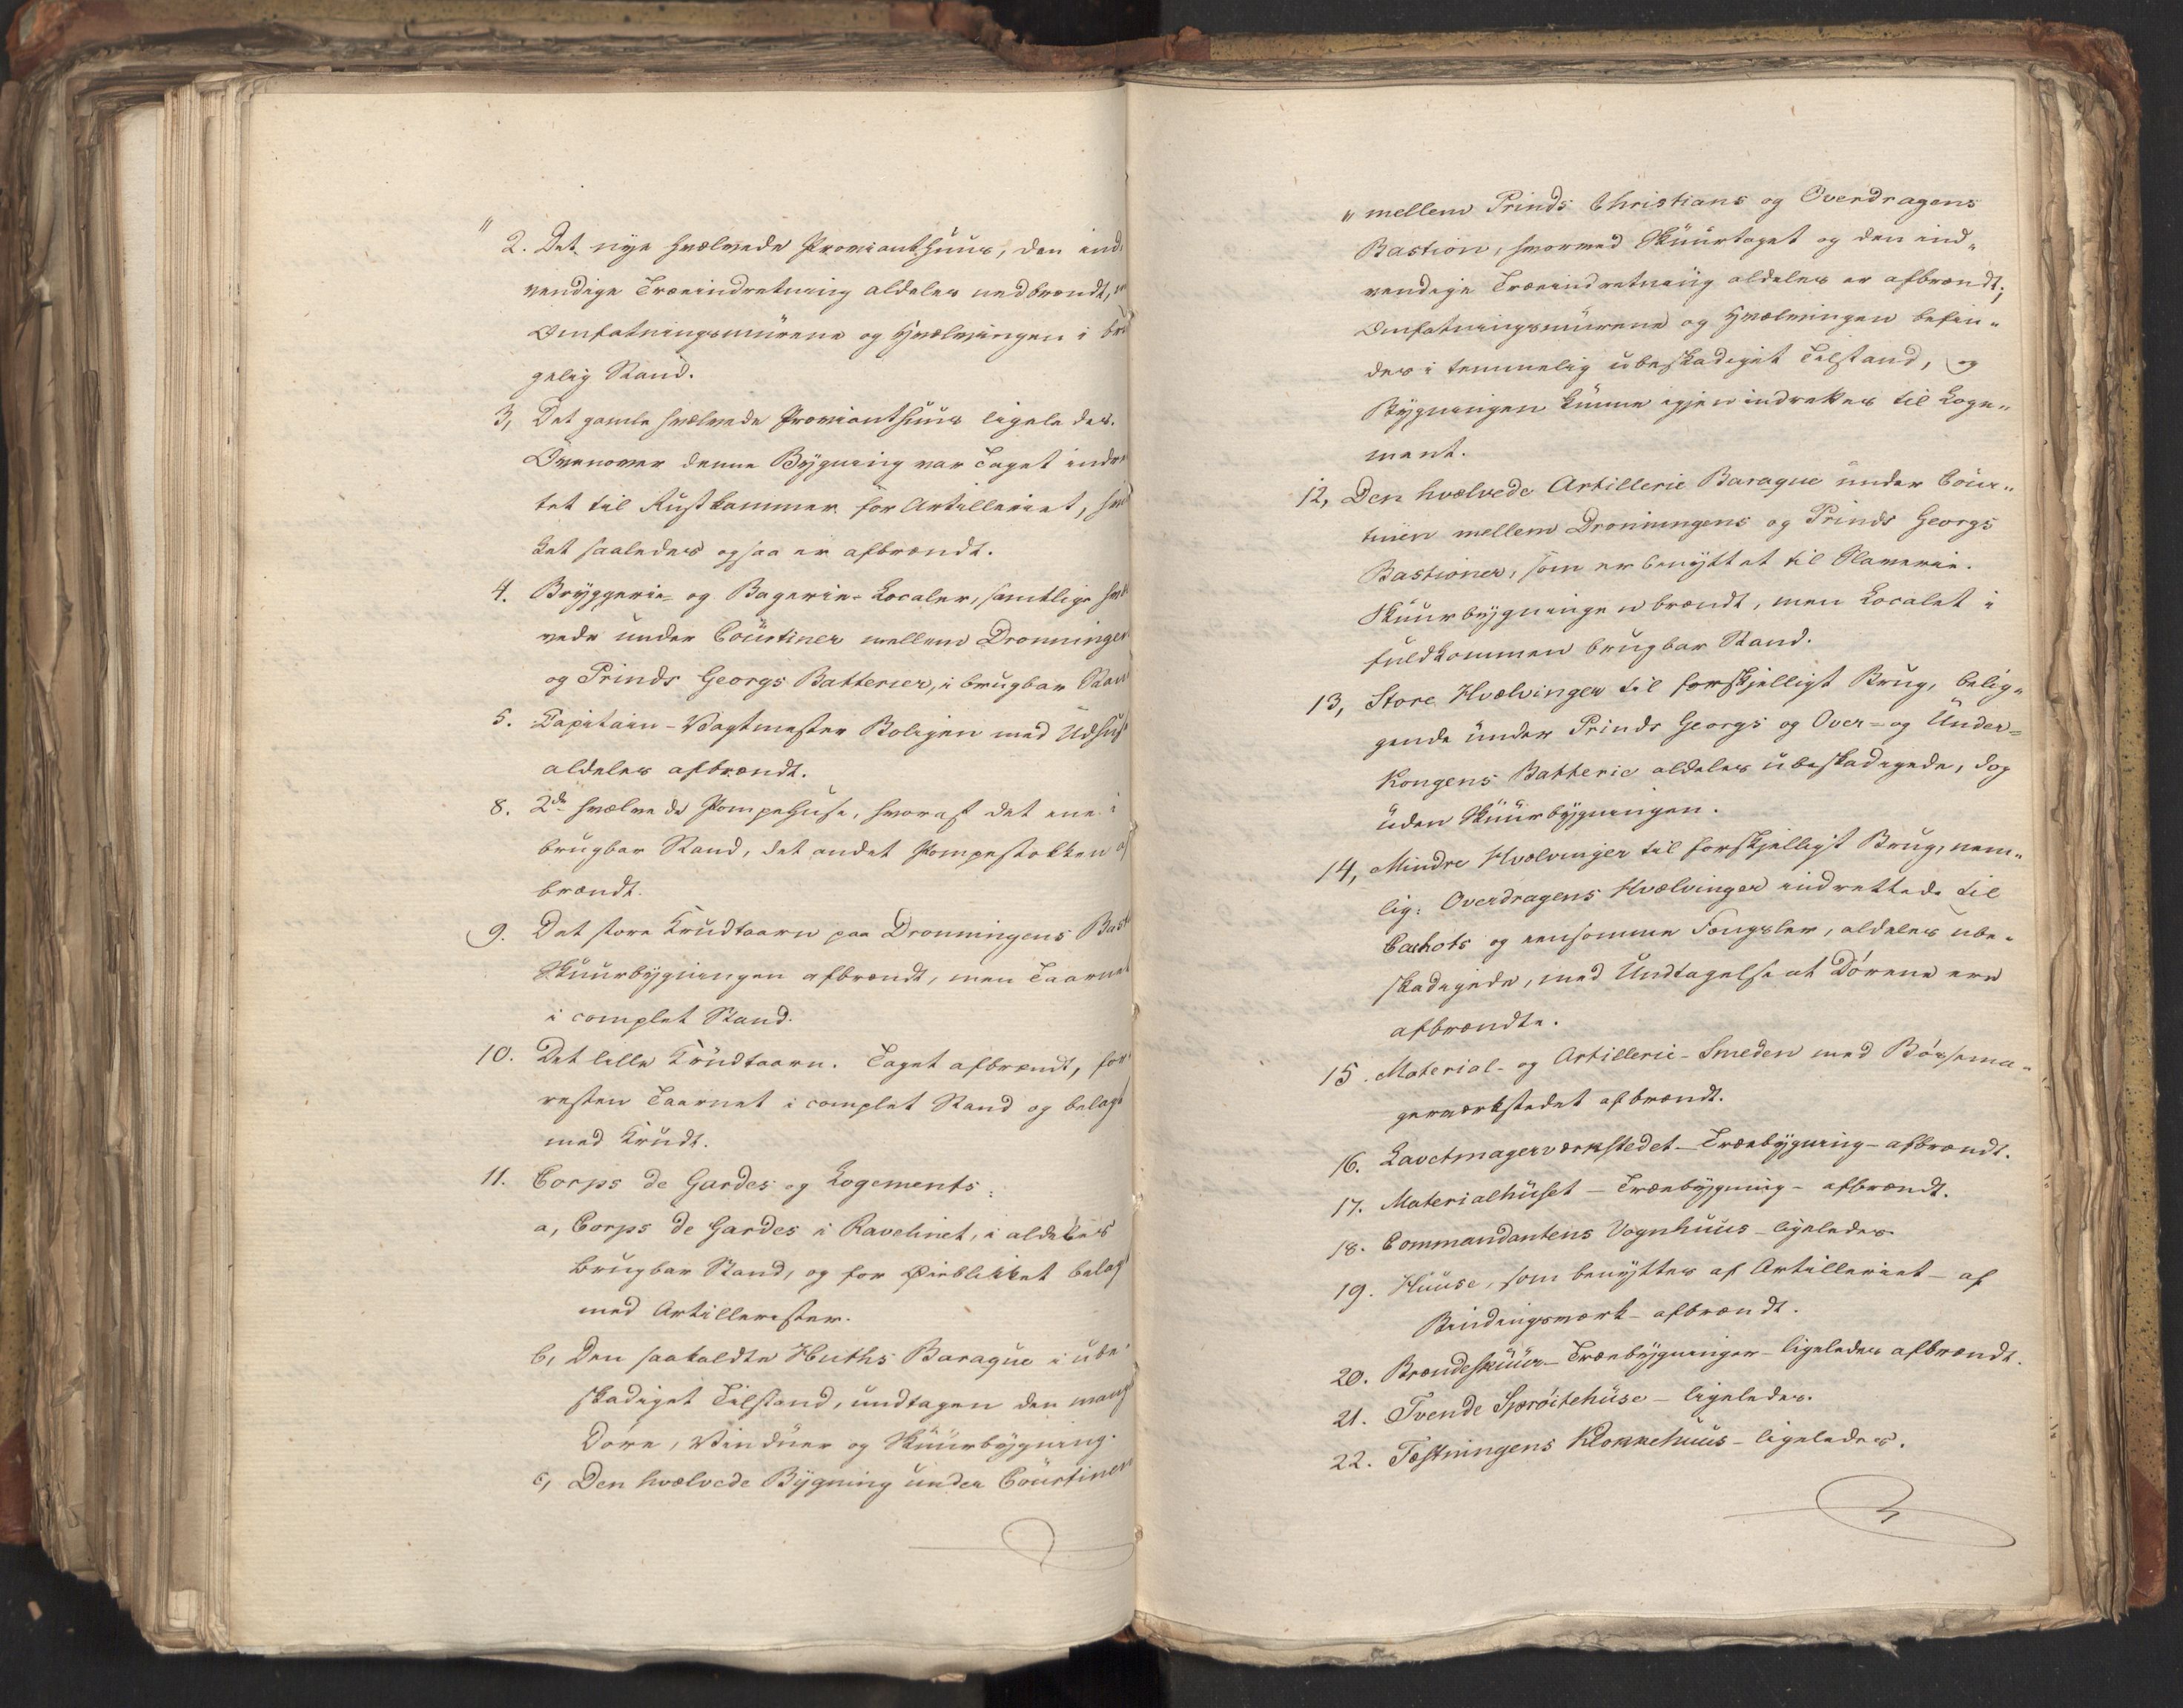 " 2. Det nye hvælvede Provianthuus, den ind-
vendige Træeindretning aldeles nedbrændt,
Omfatningsmurene og Hvælvingen i bru
gelig Stand.
3, Det gamle hvælvede Provianthuus ligeledes.
Ovenover denne Bygning var Taget indret
tet til Rustkammer for Artilleriet, hvil
ket saaledes ogsaa er afbrændt.
4. Bryggerie- og Bagerie-Localer, samtlige hvæl
vede under Courtiner mellem Dronningen
og Prinds Georgs Batterier, i brugbar Stand
5. Capitain-Vagtmester Boligen med Udhuse
aldeles afbrændt.
8. 2de hvælvede Pompehuse, hvoraf det ene i
brugbar Stand, det andet Pompestokken af
brændt.
9. Det store Krudtaarn paa Dronningens Bast
Skuurbygningen afbrændt, men Taarnet
i complet Stand.
10. Det lille Krudtaarn. Taget afbrændt, for
resten Taarnet i complet Stand og belagt
med Krudt.
11. Corps de Gardes og Logements:
a, Corps de Gardes i Ravelinet, i aldeles
brugbar Stand, og for Øieblikket belagt
med Artillerister.
b, Den saakaldte Huths Baraque i ube
skadiget Tilstand, undtagen den mangler
Døre, Vinduer og Skuurbygning.
c, Den hvælvede Bygning under Courtinen
" mellem Prinds Christians og Overdragens
Bastion, hvorved Skuurtaget og den ind-
vendige Træeindretning aldeles er afbrændt;
Omfatningsmurene og Hvælvingen befin-
des i temmelig ubeskadiget Tilstand, og
Bygningen kunne igjen indrettes til Loge-
ment.
12, Den hvælvede Artillerie Baraque under Cour-
tinen mellem Dronningens og Prinds Georgs
Bastioner, som er benyttet til Slaverie.
Skuurbygningen brændt, men Localet i
fuldkommen brugbar Stand.
13, Store Hvælvinger til forskjelligt Brug, belig-
gende under Prinds Georgs og Over- og Under-
Kongens Batterie aldeles ubeskadigede, dog
uden Skuurbygningen.
14, Mindre Hvælvinger til forskjelligt Brug, nem-
lig: Overdragens Hvælvinger indrettede til
Cachots og eensomme Fængsler, aldeles ube-
skadigede, med Undtagelse at Dørene ere
afbrændte.
15. Material- og Artillerie-Smeden med Bøssema-
gerværkstedet afbrændt.
16. Lavetmagerværkstedet - Træebygning - afbrændt.
17. Materialhuset - Træebygning - afbrændt.
18. Commandantens Vognhuus - ligeledes.
19. Huuse, som benyttes af Artilleriet - af
Bindingsværk - afbrændt.
20. Brændeskuur - Træebygninger - ligeledes afbrændt.
21. Tvende Sprøitehuse - ligeledes.
22. Fæstningens Klokkehuus - ligeledes.